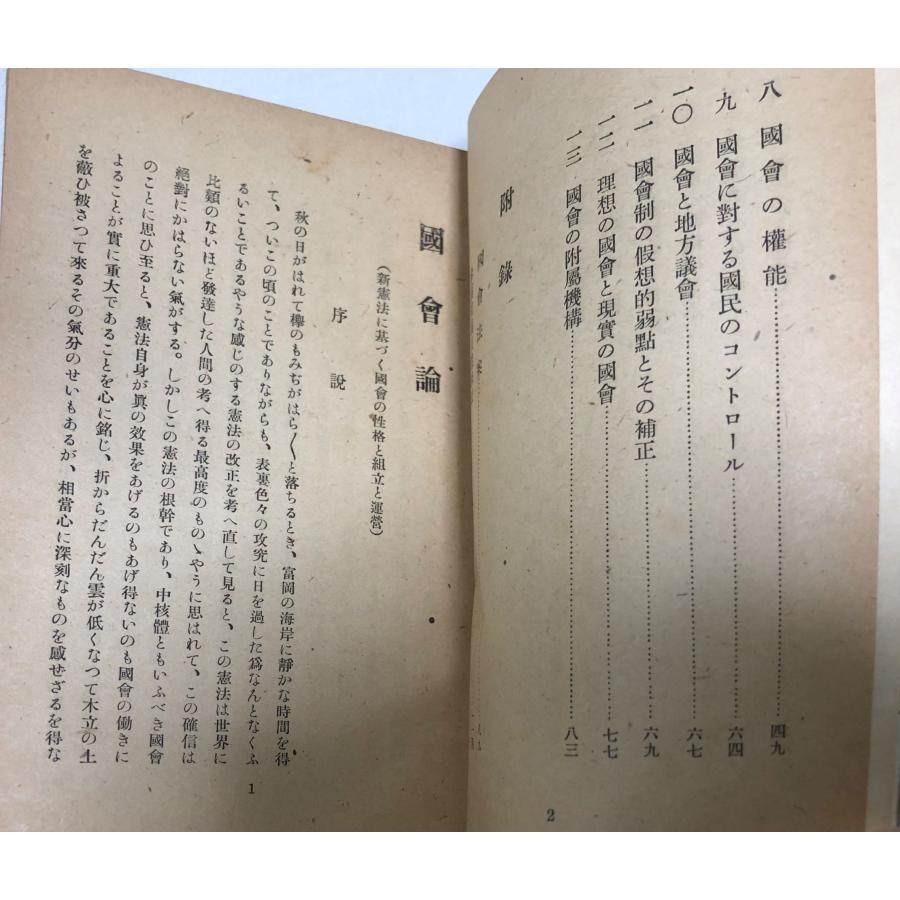 八　國會の權能……………………四九
九　國會に對する國民のコントロール……………………六四
一〇　國會と地方議會……………………六七
一一　國會制の假想的弱點とその補正……………………六九
一二　理想の國會と現實の國會……………………七七
一三　國會の附屬機構……………………八三
附錄
2
國會論
(新憲法に基づく國會の性格と組立と運營)
序說
秋の日がはれて欅のもみぢがはら〱と落ちるとき、富岡の海岸に靜かな時間を得
て、ついこの頃のことでありながらも、表裏色々の攻究に日を過した爲なんとなくふ
るいことであるやうな感じのする憲法の改正を考へ直して見ると、この憲法は世界に
比類のないほど發達した人間の考へ得る最高度のものゝやうに思はれて、この確信は
絕對にかはらない氣がする。しかしこの憲法の根幹であり、中核體ともいふべき國會
のことに思ひ至ると、憲法自身が眞の效果をあげるのもあげ得ないのも國會の働きに
よることが實に重大であることを心に銘じ、折からだんだん雲が低くなつて木立の上
を蔽ひ被さつて來るその氣分のせいもあるが、相當心に深刻なものを感せざるを得な
1